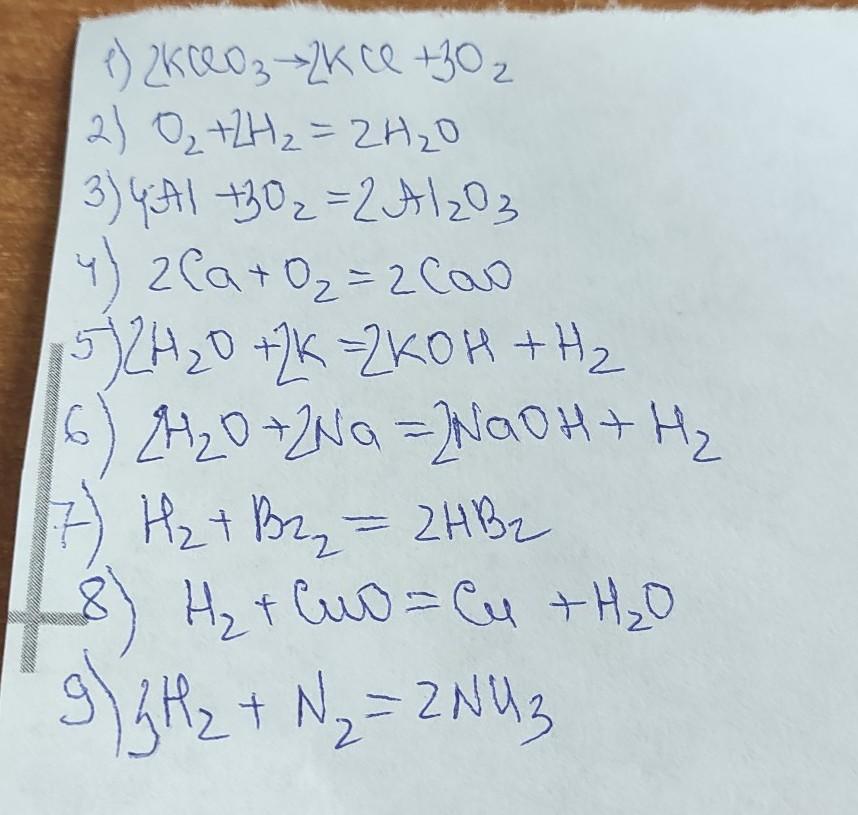 1) 2KClO3→2KCl+3O2
2) O2+2H2=2H2O
3) 4Al+3O2=2Al2O3
4) 2Ca+O2=2CaO
5) 2H2O+2K=2KOH+H2
6) 2H2O+2Na=2NaOH+H2
7) H2+Br2=2HBr
8) H2+CuO=Cu+H2O
9) 3H2+N2=2NH3